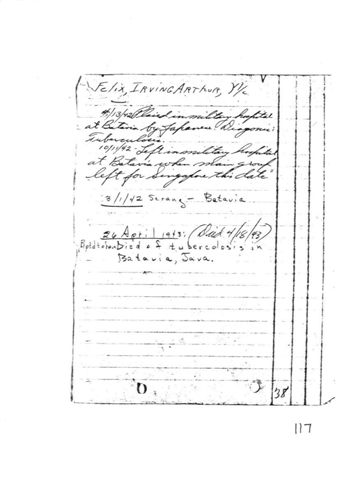 Felix, Irving Arthur, Y/c
4/13/42 Placed in military hospital
at Batavia by Japanese Diagonis:
Tuberculosis.
10/11/42 Left in military hospital
at Batavia when main group
left for Singapore this date"
3/1/42 Serang - Batavia
26 April 1943: (Died 4/18/43)
Died of tubercolosis in
Batavia, Java.
38
117